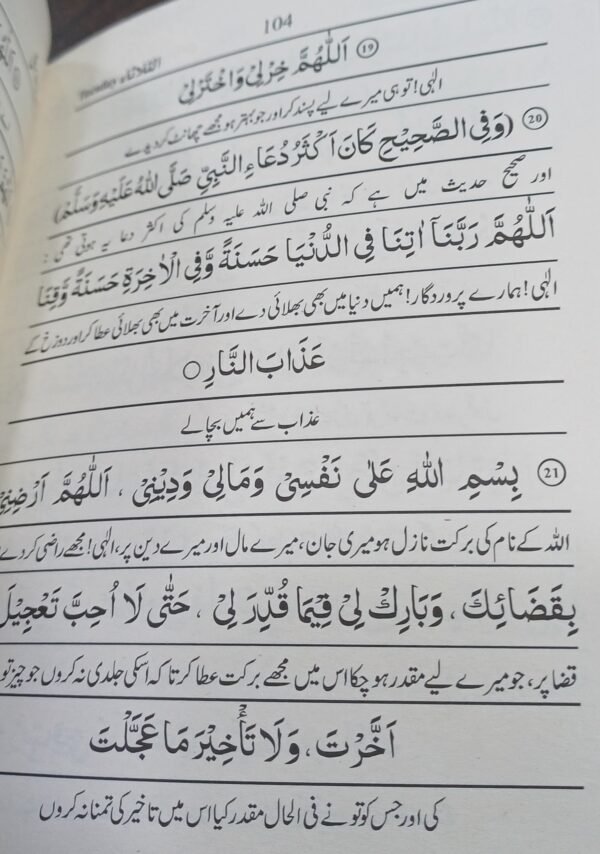 104
Tuesday الثلاثاء
⑲ اَللّٰهُمَّ خِرْلِيْ وَاخْتَرْلِيْ
الٰہی! تو ہی میرے لیے پسند کر اور جو بہتر ہو مجھے چھانٹ کر دیدے
⑳ (وَفِي الصَّحِيْحِ كَانَ اَكْثَرُ دُعَاءِ النَّبِيِّ صَلَّى اللهُ عَلَيْهِ وَسَلَّمَ)
اور صحیح حدیث میں ہے کہ نبی صلی اللہ علیہ وسلم کی اکثر دعا یہ ہوتی تھی :
اَللّٰهُمَّ رَبَّنَآ اٰتِنَا فِي الدُّنْيَا حَسَنَةً وَّفِي الْاٰخِرَةِ حَسَنَةً وَّقِنَا
الٰہی! ہمارے پروردگار! ہمیں دنیا میں بھی بھلائی دے اور آخرت میں بھی بھلائی عطا کر اور دوزخ کے
عَذَابَ النَّارِ ○
عذاب سے ہمیں بچالے
㉑ بِسْمِ اللهِ عَلٰى نَفْسِيْ وَمَالِيْ وَدِيْنِيْ ، اَللّٰهُمَّ اَرْضِنِيْ
اللہ کے نام کی برکت نازل ہو میری جان، میرے مال اور میرے دین پر، الٰہی! مجھے راضی کر دے
بِقَضَائِكَ ، وَبَارِكْ لِيْ فِيْمَا قُدِّرَ لِيْ ، حَتّٰى لَا اُحِبَّ تَعْجِيْلَ
قضا پر، جو میرے لیے مقدر ہو چکا اس میں مجھے برکت عطا کر تاکہ اسکی جلدی نہ کروں جو چیز تو
اَخَّرْتَ ، وَلَا تَأْخِيْرَ مَا عَجَّلْتَ
کی اور جس کو تونے فی الحال مقدر کیا اس میں تاخیر کی تمنا نہ کروں